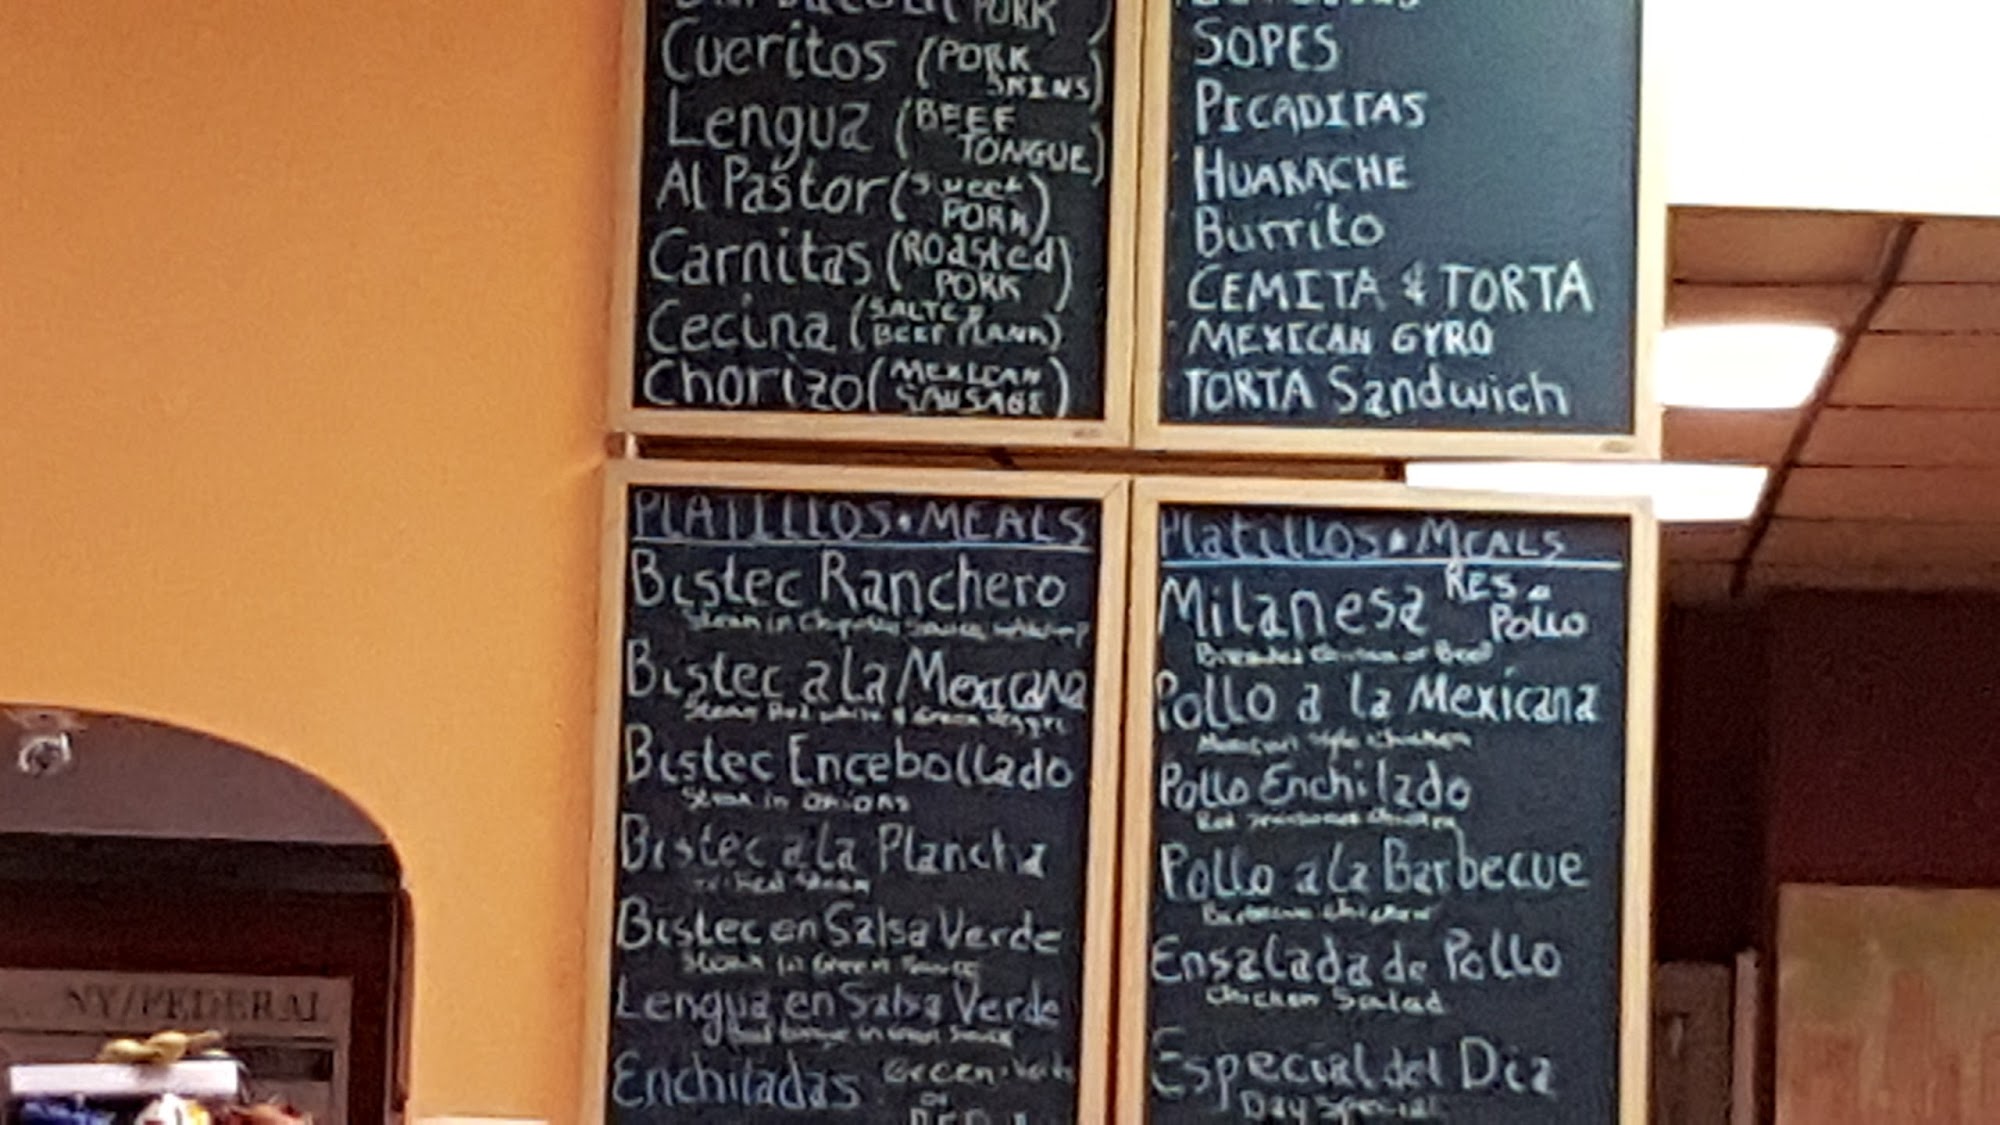 PORK
Cueritos (PORK SKINS)
Lengua (BEEF TONGUE)
Al Pastor (Sweet PORK)
Carnitas (ROasted PORK)
Cecina (SALTED BEEF PLANK)
Chorizo (MEXICAN SAUSAGE)
SOPES
PICADITAS
HUARACHE
Burrito
CEMITA & TORTA
MEXICAN GYRO
TORTA Sandwich
PLATILLOS • MEALS
Bistec Ranchero
Steak in Chipotle Sauce
Bistec a la Mexicana
Steak Red white & Green Veggie
Bistec Encebollado
Steak in Onions
Bistec a la Plancha
Steak
Bistec en Salsa Verde
Steak in Green Sauce
Lengua en Salsa Verde
Enchiladas Green
or
RED
Platillos • MEALS
Milanesa RES o Pollo
Breaded Chicken or Beef
Pollo a la Mexicana
Mexican Style Chicken
Pollo Enchilado
Pollo a la Barbecue
Barbecue Chicken
Ensalada de Pollo
Chicken Salad
Especial del Dia
Day Special
NY/FEDERAL